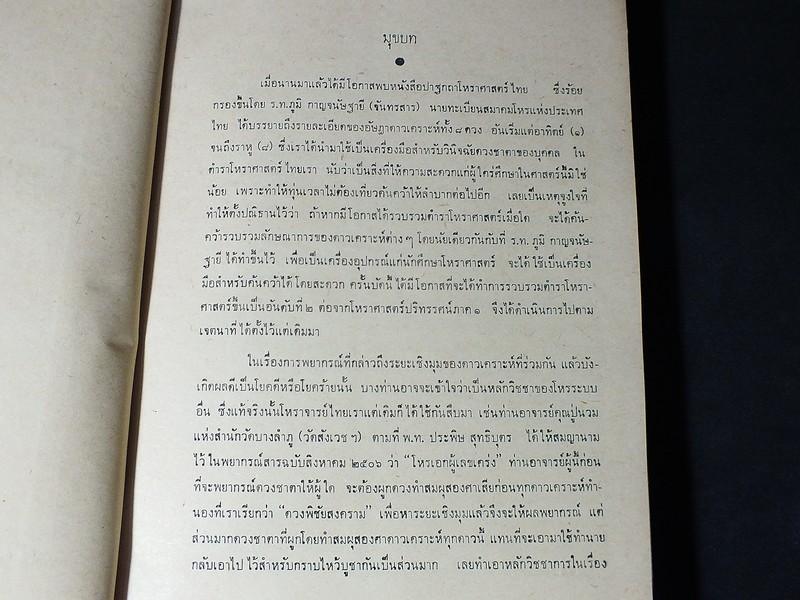 มุขบท
เมื่อนานมาแล้วได้มีโอกาสพบหนังสือปาฐกถาโหราศาสตร์ไทย ซึ่งร้อย
กรองขึ้นโดย ร.ท.ภูมิ กาญจนัษฐายี (จันทรสาร) นายทะเบียนสมาคมโหรแห่งประเทศ
ไทย ได้บรรยายถึงรายละเอียดของอัษฎาดาวเคราะห์ทั้ง ๘ ดวง อันเริ่มแต่อาทิตย์ (๑)
จนถึงราหู (๘) ซึ่งเราได้นำมาใช้เป็นเครื่องมือสำหรับวินิจฉัยดวงชาตาของบุคคล ใน
ตำราโหราศาสตร์ไทยเรา นับว่าเป็นสิ่งที่ให้ความสะดวกแก่ผู้ใคร่ศึกษาในศาสตร์นี้มิใช่
น้อย เพราะทำให้ทุ่นเวลาไม่ต้องเที่ยวค้นคว้าให้ลำบากต่อไปอีก เลยเป็นเหตุจูงใจที่
ทำให้ตั้งปณิธานไว้ว่า ถ้าหากมีโอกาสได้รวบรวมตำราโหราศาสตร์เมื่อใด จะได้ค้น-
คว้ารวบรวมลักษณาการของดาวเคราะห์ต่าง ๆ โดยนัยเดียวกันกับที่ ร.ท. ภูมิ กาญจนัษ-
ฐายี ได้ทำขึ้นไว้ เพื่อเป็นเครื่องอุปกรณ์แก่นักศึกษาโหราศาสตร์ จะได้ใช้เป็นเครื่อง
มือสำหรับค้นคว้าได้โดยสะดวก ครั้นบัดนี้ได้มีโอกาสที่จะได้ทำการรวบรวมตำราโหรา-
ศาสตร์ขึ้นเป็นอันดับที่ ๒ ต่อจากโหราศาสตร์ปริทรรศน์ภาค ๑ จึงได้ดำเนินการไปตาม
เจตนาที่ได้ตั้งไว้แต่เดิมมา
ในเรื่องการพยากรณ์ที่กล่าวถึงระยะเชิงมุมของดาวเคราะห์ที่ร่วมกัน แล้วบัง-
เกิดผลดีเป็นโยคดีหรือโยคร้ายนั้น บางท่านอาจจะเข้าใจว่าเป็นหลักวิชชาของโหรระบบ
อื่น ซึ่งแท้จริงนั้นโหราจารย์ไทยเราแต่เดิมก็ได้ใช้กันสืบมา เช่นท่านอาจารย์คุณปู่นวม
แห่งสำนักวัดบางลำภู (วัดสังเวช ฯ) ตามที่ พ.ท. ประพิษ สุทธิบุตร ได้ให้สมญานาม
ไว้ในพยากรณ์สารฉบับสิงหาคม ๒๕๐๖ ว่า “โหรเอกผู้เลขเคร่ง” ท่านอาจารย์ผู้นี้ก่อน
ที่จะพยากรณ์ดวงชาตาให้ผู้ใด จะต้องผูกดวงทำสมผุสองศาเสียก่อนทุกดาวเคราะห์ทำ-
นองที่เราเรียกว่า “ดวงพิชัยสงคราม” เพื่อหาระยะเชิงมุมแล้วจึงจะให้ผลพยากรณ์ แต่
ส่วนมากดวงชาตาที่ผูกโดยทำสมผุสองศาดาวเคราะห์ทุกดาวนี้ แทนที่จะเอามาใช้ทำนาย
กลับเอาไปไว้สำหรับกราบไหว้บูชากันเป็นส่วนมาก เลยทำเอาหลักวิชชาการในเรื่อง